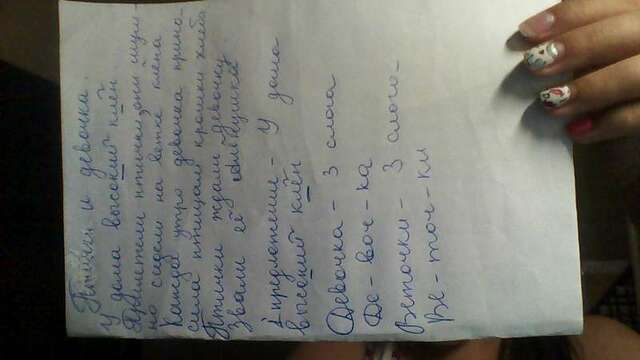 Птички и девочка.
У дома высокий клён
Прилетели птички. Они шум-
но сидели на ветке клёна
Каждое утро девочка прино
сила птицам крошки хлеба
Птички ждали девочку
Звали её
1 предложение - У дома
высокий клён
Девочка - 3 слога
Де - воч - ка
Веточки - 3 слога -
Ве - точ - ки